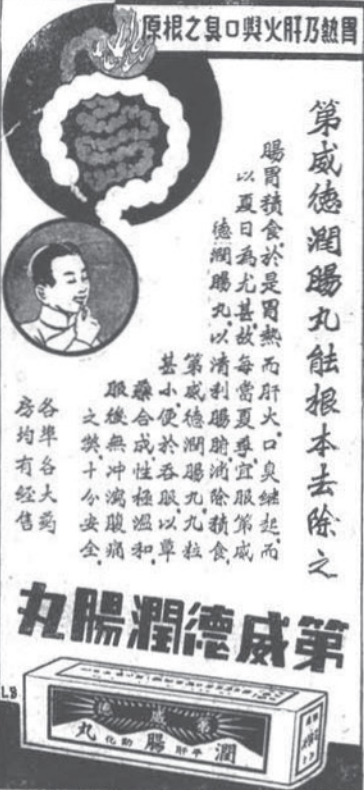 胃熱乃肝火與口臭之根原
第威德潤腸丸能根本去除之
腸胃積食於是胃熱而肝火口臭繼起而
以夏日為尤甚故每當夏季宜服第威
德潤腸丸以清利腸腑消除積食
第威德潤腸丸丸粒
甚小便於吞服以草
藥合成性極溫和
服後無冲瀉腹痛
之弊十分安全
各埠各大藥
房均有經售
第威德潤腸丸
LB
第威德
潤腸丸
平肝
助化